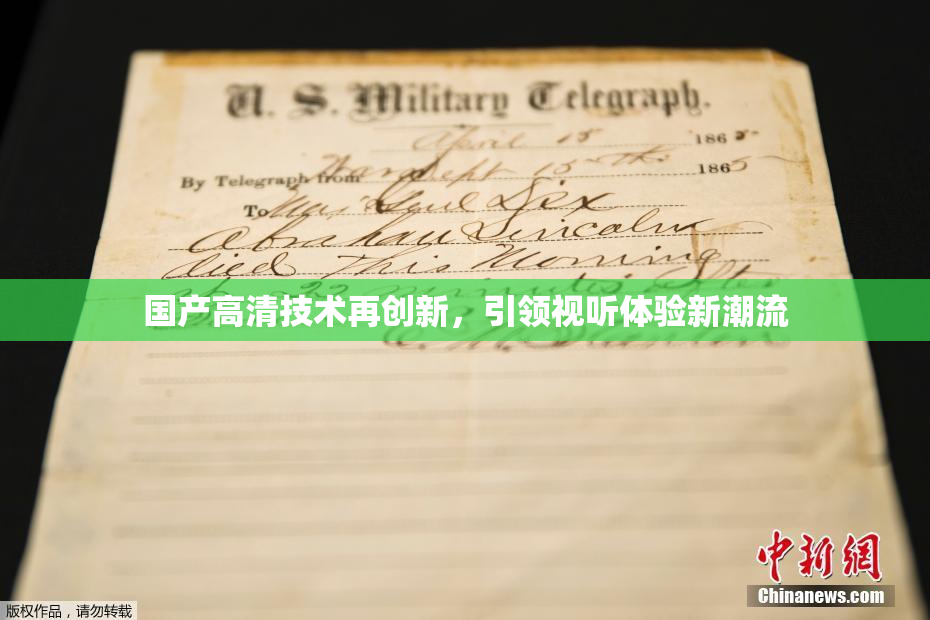 U. S. Military Telegraph.
April 15 1865
By Telegraph from War Dept 15th 1865
To Maj Genl Dix
Abraham Lincoln
died This Morning
22 minutes after
国产高清技术再创新，引领视听体验新潮流
中新网
Chinanews.com
版权作品，请勿转载